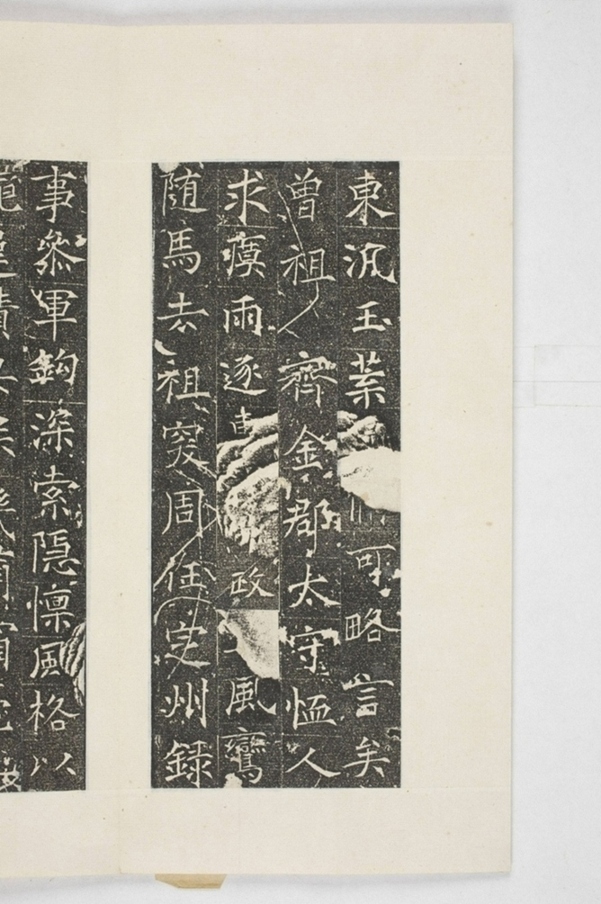 東汎玉葉可略言矣
曾祖齊金郡太守恤人
求瘼雨逐政風鸞
随馬去祖突周任定州録
事叅軍鈎深索隱懍風格以